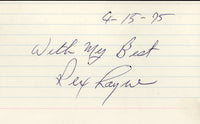 4-15-95
With My Best
Rex Rayne